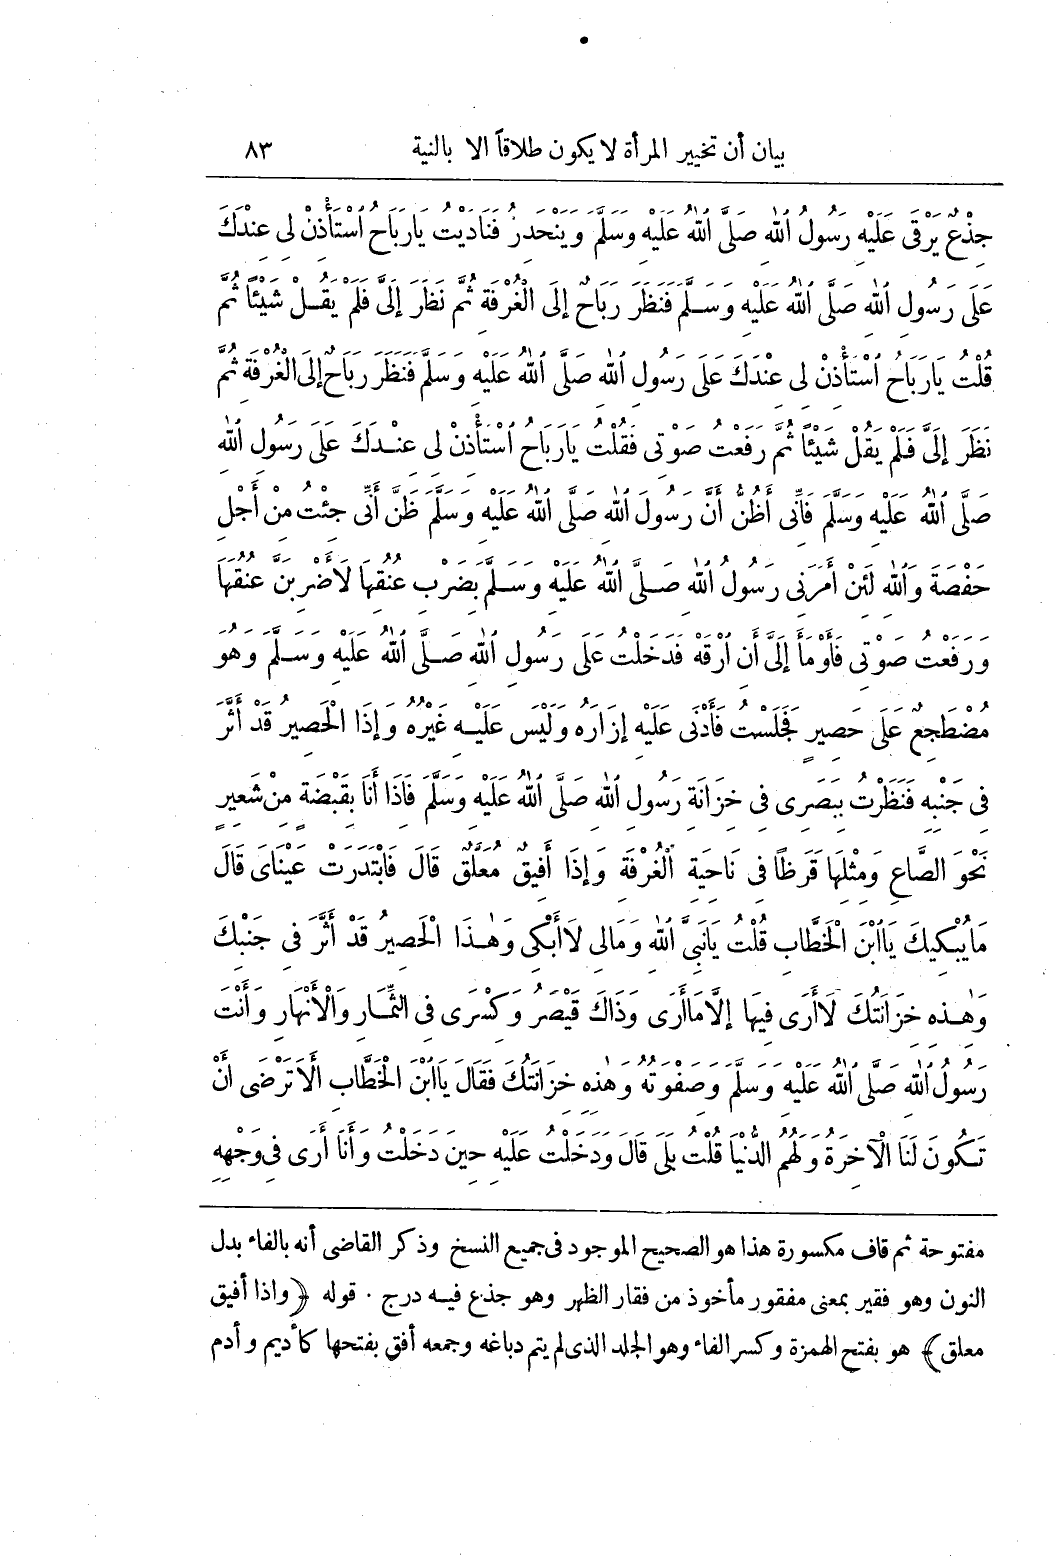 بيان أن تخيير المرأة لا يكون طلاقاً الا بالنية ٨٣
جِذْعٌ يَرْقَى عَلَيْهِ رَسُولُ ٱللهِ صَلَّى ٱللهُ عَلَيْهِ وَسَلَّمَ وَيَنْحَدِرُ فَنَادَيْتُ يَارَبَاحُ ٱسْتَأْذِنْ لِى عِنْدَكَ
عَلَى رَسُولِ ٱللهِ صَلَّى ٱللهُ عَلَيْهِ وَسَلَّمَ فَنَظَرَ رَبَاحٌ إِلَى الْغُرْفَةِ ثُمَّ نَظَرَ إِلَىَّ فَلَمْ يَقُلْ شَيْئًا ثُمَّ
قُلْتُ يَارَبَاحُ ٱسْتَأْذِنْ لِى عِنْدَكَ عَلَى رَسُولِ ٱللهِ صَلَّى ٱللهُ عَلَيْهِ وَسَلَّمَ فَنَظَرَ رَبَاحٌ إِلَى الْغُرْفَةِ ثُمَّ
نَظَرَ إِلَىَّ فَلَمْ يَقُلْ شَيْئًا ثُمَّ رَفَعْتُ صَوْتِى فَقُلْتُ يَارَبَاحُ ٱسْتَأْذِنْ لِى عِنْدَكَ عَلَى رَسُولِ ٱللهِ
صَلَّى ٱللهُ عَلَيْهِ وَسَلَّمَ فَانِّى أَظُنُّ أَنَّ رَسُولَ ٱللهِ صَلَّى ٱللهُ عَلَيْهِ وَسَلَّمَ ظَنَّ أَنِّى جِئْتُ مِنْ أَجْلِ
حَفْصَةَ وَٱللهِ لَئِنْ أَمَرَنِى رَسُولُ ٱللهِ صَلَّى ٱللهُ عَلَيْهِ وَسَلَّمَ بِضَرْبِ عُنُقِهَا لَأَضْرِبَنَّ عُنُقَهَا
وَرَفَعْتُ صَوْتِى فَأَوْمَأَ إِلَىَّ أَنِ ٱرْقَهْ فَدَخَلْتُ عَلَى رَسُولِ ٱللهِ صَلَّى ٱللهُ عَلَيْهِ وَسَلَّمَ وَهُوَ
مُضْطَجِعٌ عَلَى حَصِيرٍ فَجَلَسْتُ فَأَدْنَى عَلَيْهِ إِزَارَهُ وَلَيْسَ عَلَيْهِ غَيْرُهُ وَإِذَا الْحَصِيرُ قَدْ أَثَّرَ
فِى جَنْبِهِ فَنَظَرْتُ بِبَصَرِى فِى خِزَانَةِ رَسُولِ ٱللهِ صَلَّى ٱللهُ عَلَيْهِ وَسَلَّمَ فَاذَا أَنَا بِقَبْضَةٍ مِنْ شَعِيرٍ
نَحْوِ الصَّاعِ وَمِثْلِهَا قَرَظًا فِى نَاحِيَةِ الْغُرْفَةِ وَإِذَا أَفِيقٌ مُعَلَّقٌ قَالَ فَابْتَدَرَتْ عَيْنَاىَ قَالَ
مَايُبْكِيكَ يَاٱبْنَ الْخَطَّابِ قُلْتُ يَانَبِىَّ ٱللهِ وَمَالِى لَاأَبْكِى وَهٰذَا الْحَصِيرُ قَدْ أَثَّرَ فِى جَنْبِكَ
وَهٰذِهِ خِزَانَتُكَ لَاأَرَى فِيهَا إِلَّامَاأَرَى وَذَاكَ قَيْصَرُ وَكِسْرَى فِى الثِّمَارِ وَالْأَنْهَارِ وَأَنْتَ
رَسُولُ ٱللهِ صَلَّى ٱللهُ عَلَيْهِ وَسَلَّمَ وَصَفْوَتُهُ وَهٰذِهِ خِزَانَتُكَ فَقَالَ يَاٱبْنَ الْخَطَّابِ أَلَاتَرْضَى أَنْ
تَكُونَ لَنَا الْآخِرَةُ وَلَهُمُ الدُّنْيَا قُلْتُ بَلَى قَالَ وَدَخَلْتُ عَلَيْهِ حِينَ دَخَلْتُ وَأَنَا أَرَى فِى وَجْهِهِ
مفتوحة ثم قاف مكسورة هذا هو الصحيح الموجود فى جميع النسخ وذكر القاضى أنه بالفاء بدل
النون وهو فقير بمعنى مفقور مأخوذ من فقار الظهر وهو جذع فيه درج . قوله ﴿واذا أفيق
معلق﴾ هو بفتح الهمزة وكسر الفاء وهو الجلد الذى لم يتم دباغه وجمعه أفق بفتحها كأديم وأدم